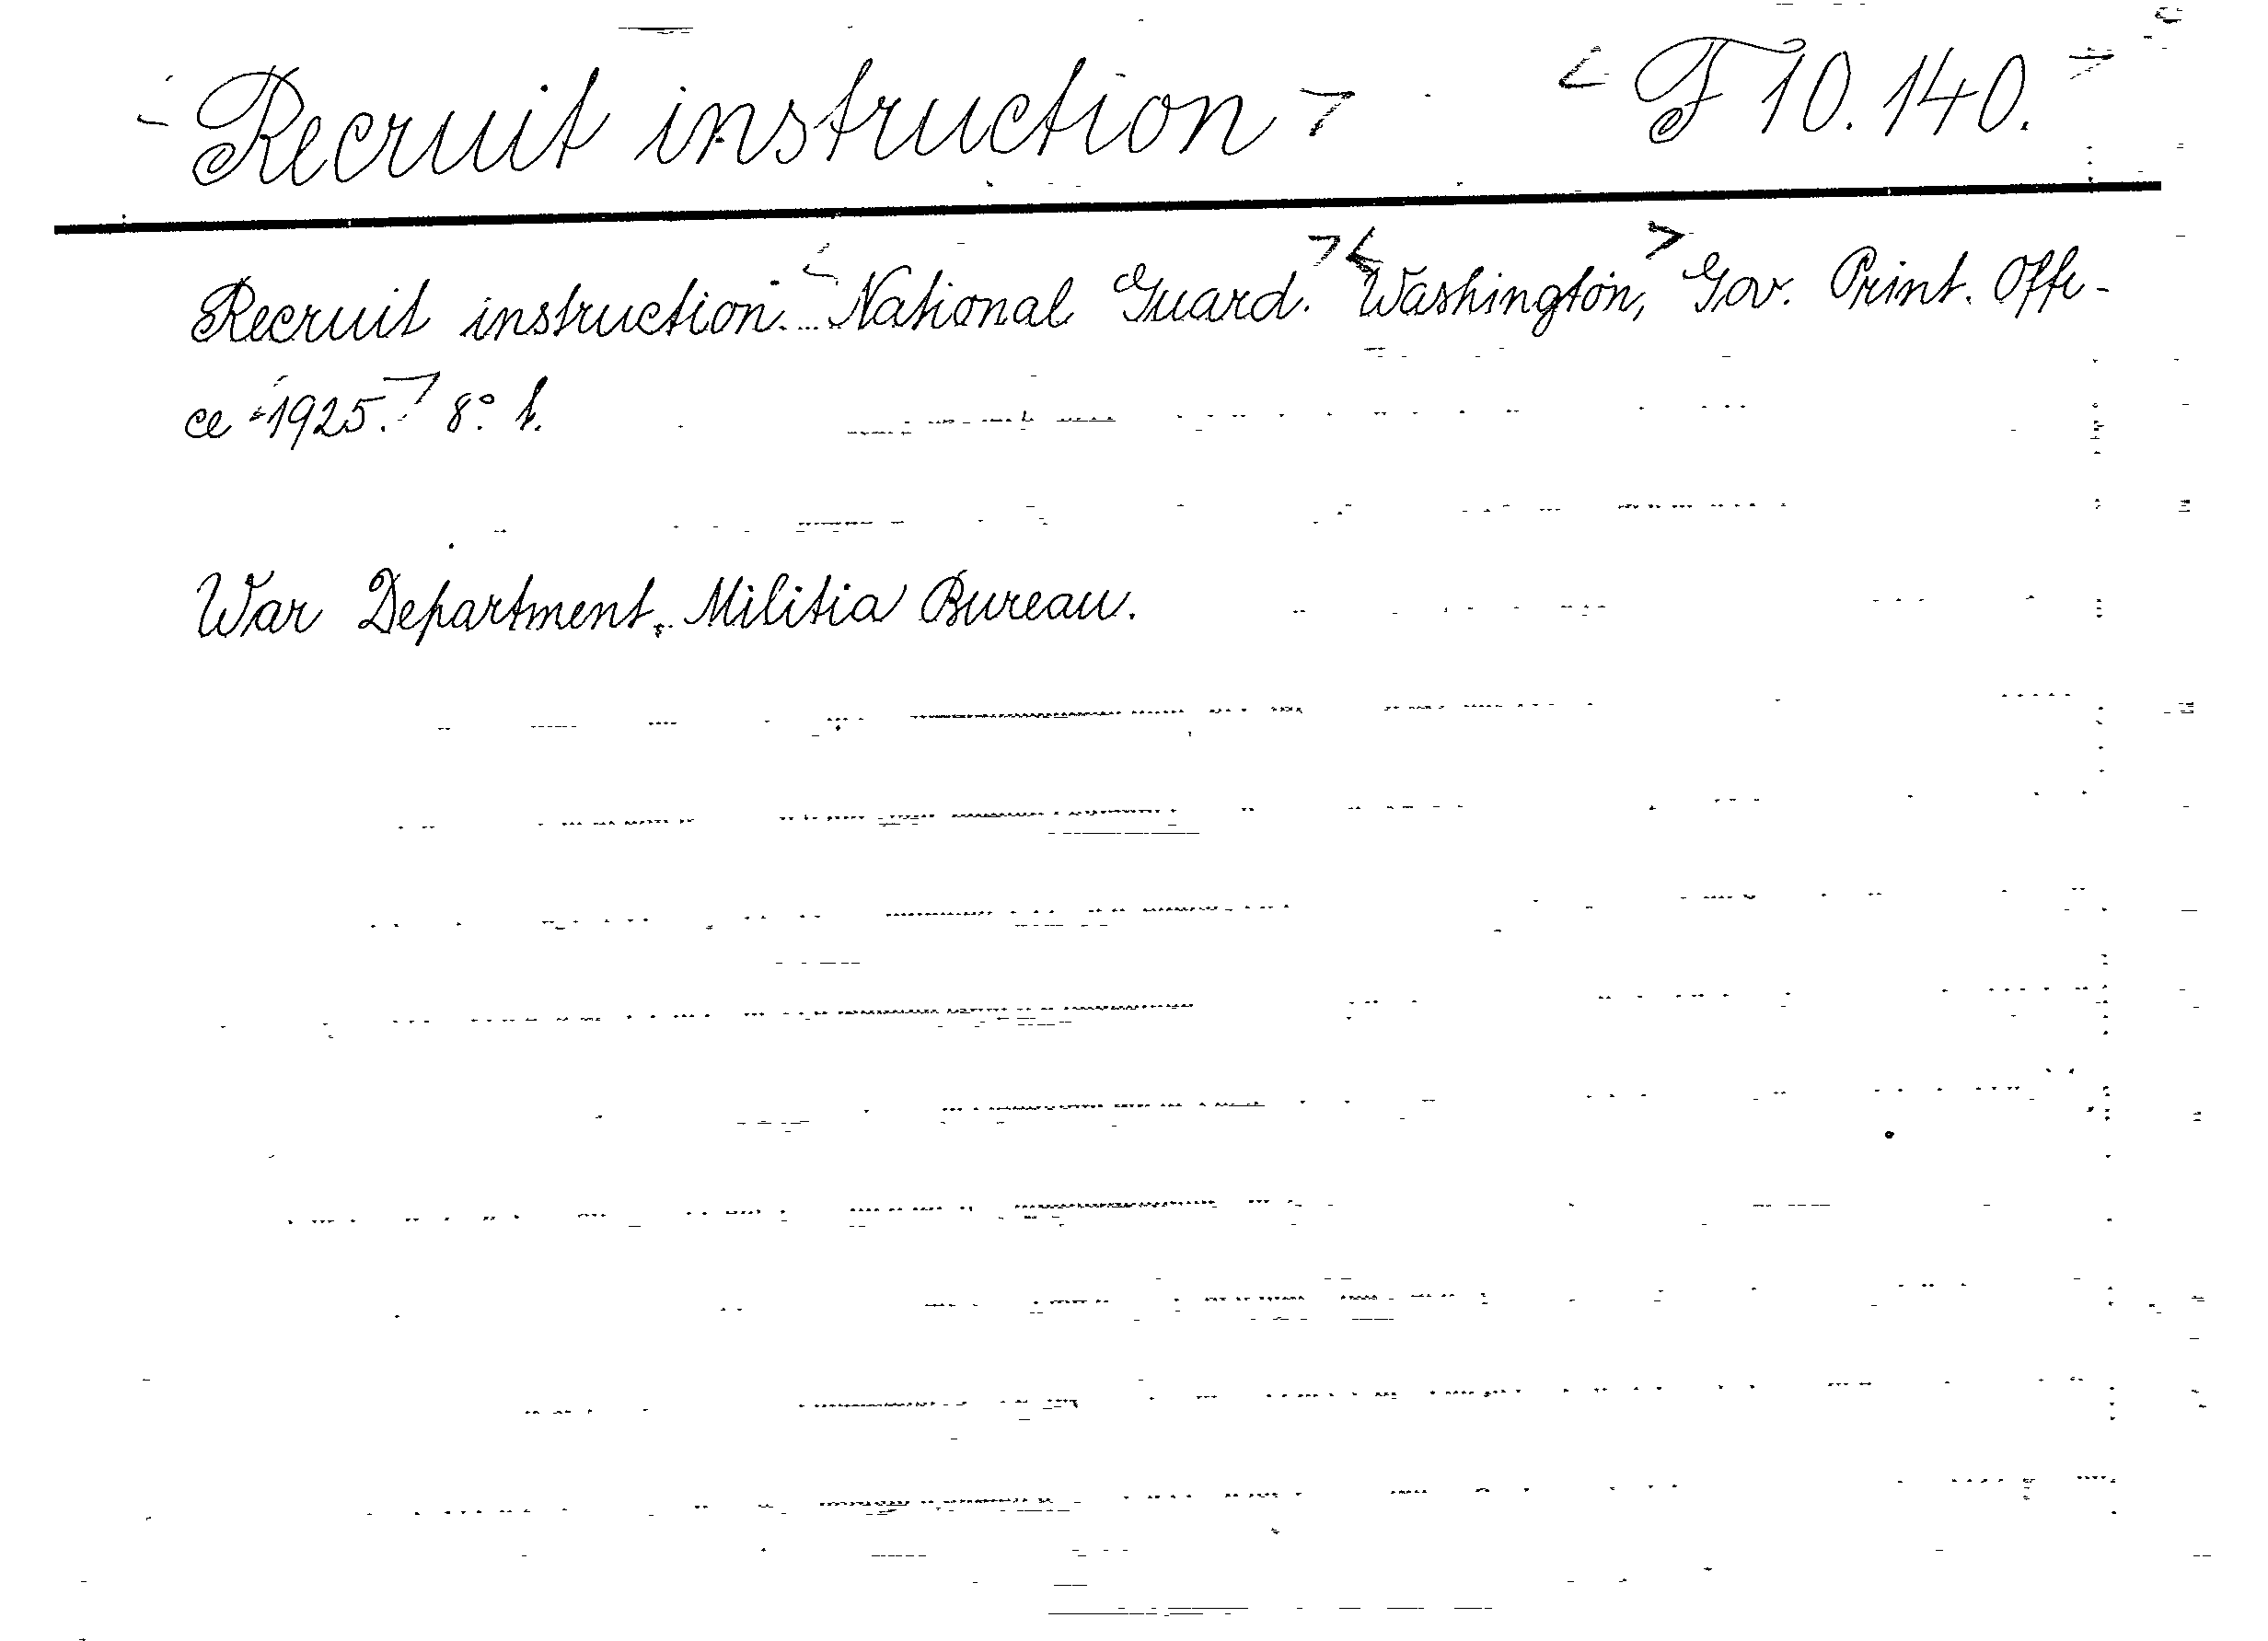 Recruit instruction F 10.140.
Recruit instruction. National Guard. Washington, Gov. Print. Offi-
ce 1925. 8° h.
War Department, Militia Bureau.